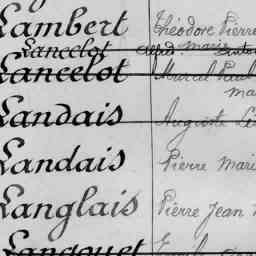 Lambert Théodore Pierre
Lancelot Alfred. Marie
Lancelot Marcel Paul
Ma
Landais Auguste
Landais Pierre Mari
Langlais Pierre Jean
Langouet